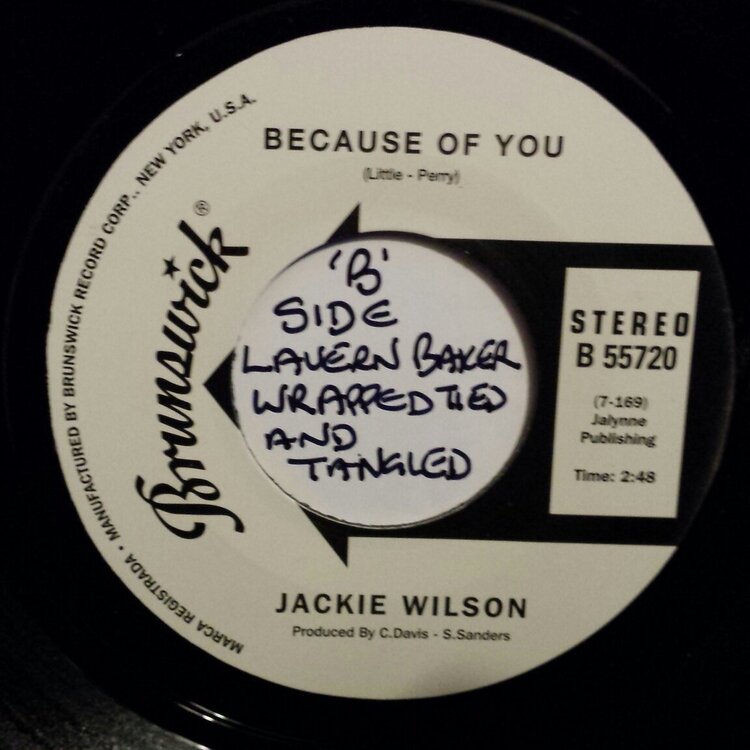 BECAUSE OF YOU
(Little - Perry)
MARCA REGISTRADA • MANUFACTURED BY BRUNSWICK RECORD CORP., NEW YORK, U.S.A.
Brunswick®
'B'
SIDE
LAVERN BAKER
WRAPPED TIED
AND
TANGLED
STEREO
B 55720
(7-169)
Jalynne
Publishing
Time: 2:48
JACKIE WILSON
Produced By C.Davis - S.Sanders